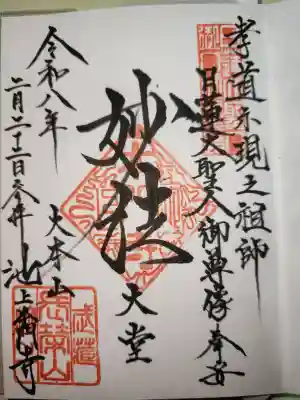 孝道示現之祖師
日蓮大聖人御尊像奉安
妙法
大堂
大本山
池上本門寺
令和八年
二月二十二日参拝